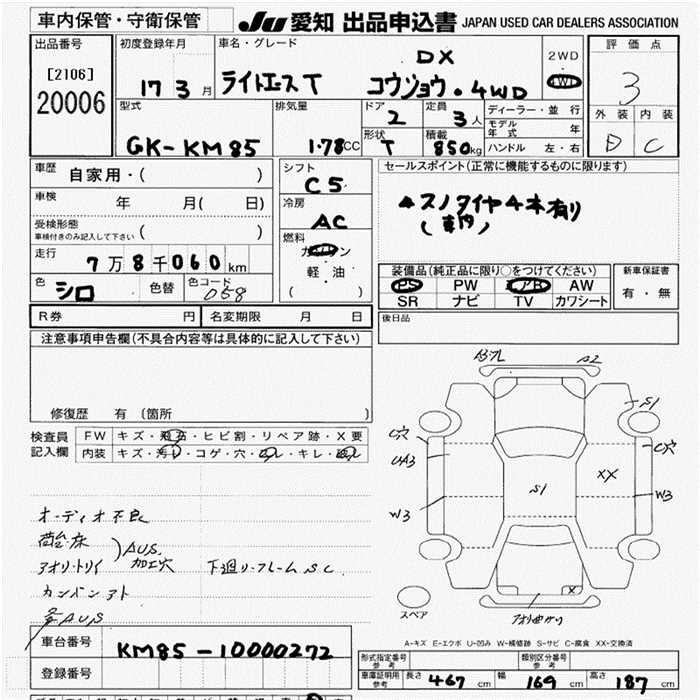 車内保管・守衛保管
JU 愛知 出品申込書 JAPAN USED CAR DEALERS ASSOCIATION
出品番号
[2106]
20006
初度登録年月
17 3 月
車名・グレード
DX
ライトエースT コウジョウ・4WD
2WD
4WD
評価点
3
外装 内装
D C
型式
GK-KM85
排気量
1.78CC
ドア
2
定員
3人
形状
T
積載
850kg
ディーラー・並行
モデル年式 年
ハンドル 左・右
車歴
自家用・( )
車検
年 月( 日)
受検形態
車検付きのみ記入して下さい ( )
走行
7万8千060km
色
シロ
色替
色コード
058
シフト
C5
冷房
AC
燃料
ガソリン
軽・油
( )
セールスポイント(正常に機能するものに限ります)
スノータイヤ4本有り
(車内)
装備品(純正品に限り○をつけてください)
PS PW エアB AW
SR ナビ TV カワシート
新車保証書
有・無
後日品
R券 円 名変期限 月 日
注意事項申告欄(不具合内容等は具体的に記入して下さい)
修復歴 有 (箇所 )
検査員
記入欄
FW キズ・飛石・ヒビ割・リペア跡・X要
内装 キズ・汚レ・コゲ・穴・
オーディオ不良
荷台・床
アオリ・トリイ
AUS
加工穴
下廻り・フレームSC
AUS
A2
S1
C穴
UA3
W3
S1
XX
C穴
W3
X
アオリ曲がり
スペア
A-キズ E-エクボ U-凹み W-補修跡 S-サビ C-腐食 XX-交換済
車台番号
KM85-10000272
登録番号
形式指定番号
参考
類別区分番号
参考
車庫証明用
参考
長さ 467 cm 幅 169 cm 高さ 187 cm